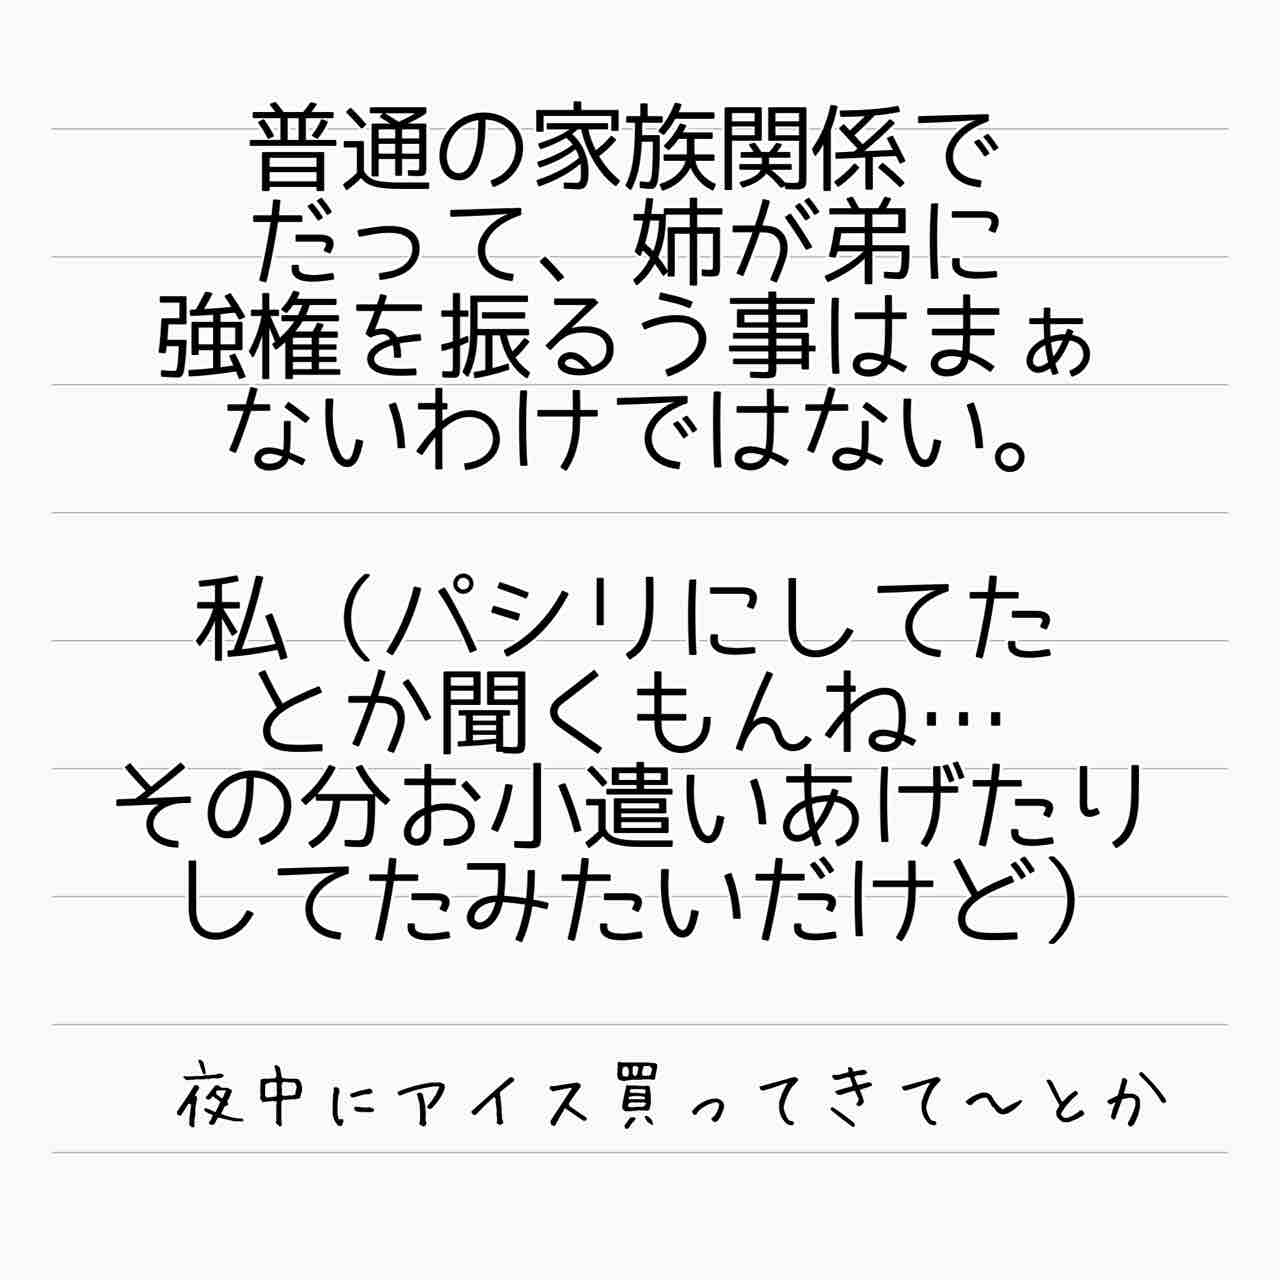 普通の家族関係で
だって、姉が弟に
強権を振るう事はまぁ
ないわけではない。
私（パシリにしてた
とか聞くもんね…
その分お小遣いあげたり
してたみたいだけど）
夜中にアイス買ってきて〜とか